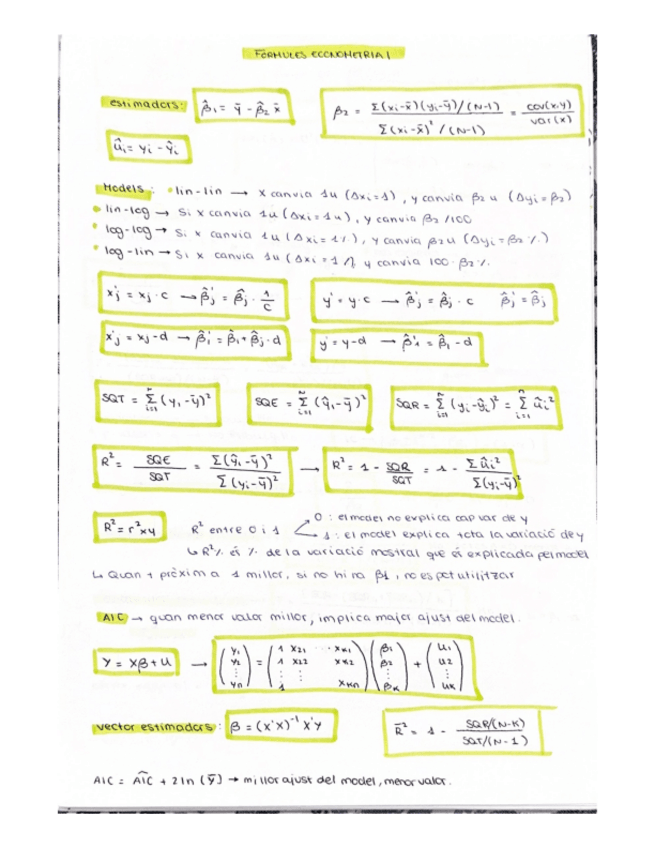 FÓRMULES ECONOMETRIA 1
estimadors: β̂₁ = ȳ - β̂₂ x̄
β₂ = Σ(xi-x̄)(yi-ȳ)/(N-1) / Σ(xi-x̄)²/(N-1) = cov(x,y) / var(x)
ûi = yi - ŷi
Models: • lin-lin → x canvia 1u (Δxi=1), y canvia β₂ u (Δyi=β₂)
• lin-log → Si x canvia 1u (Δxi=1u), y canvia β₂/100
• log-log → Si x canvia 1u (Δxi=1%), y canvia β₂u (Δyi=β₂%)
• log-lin → Si x canvia 1u (Δxi=1), y canvia 100·β₂%
x'j = xj·c → β̂'j = β̂j · 1/c
y' = y·c → β̂'j = β̂j · c β̂'j = β̂j
x'j = xj-d → β̂'₁ = β̂₁+β̂j·d
y' = y-d → β̂'₁ = β̂₁-d
SQT = Σ(yi-ȳ)²
SQE = Σ(ŷi-ȳ)²
SQR = Σ(yi-ŷi)² = Σ ûi²
R² = SQE/SQT = Σ(ŷi-ȳ)² / Σ(yi-ȳ)² → R² = 1 - SQR/SQT = 1 - Σûi² / Σ(yi-ȳ)²
R²=r²xy
R² entre 0 i 1
0: el model no explica cap var de y
1: el model explica tota la variació de y
↳ R²% és % de la variació mostral que és explicada pel model
↳ Quan + pròxim a 1 millor, si no hi ha β1, no es pot utilitzar
AIC → quan menor valor millor, implica major ajust del model.
Y = Xβ+U → (y₁ y₂ ⋮ yn) = (1 x₂₁ ··· xK1 1 x₂₂ xK2 ⋮ 1 xKn) (β₁ β₂ ⋮ βK) + (u₁ u₂ ⋮ uK)
vector estimadors: β = (X'X)⁻¹ X'Y
R̄² = 1 - SQR/(N-K) / SQT/(N-1)
AIC = A͂IC + 2ln(ȳ) → millor ajust del model, menor valor.